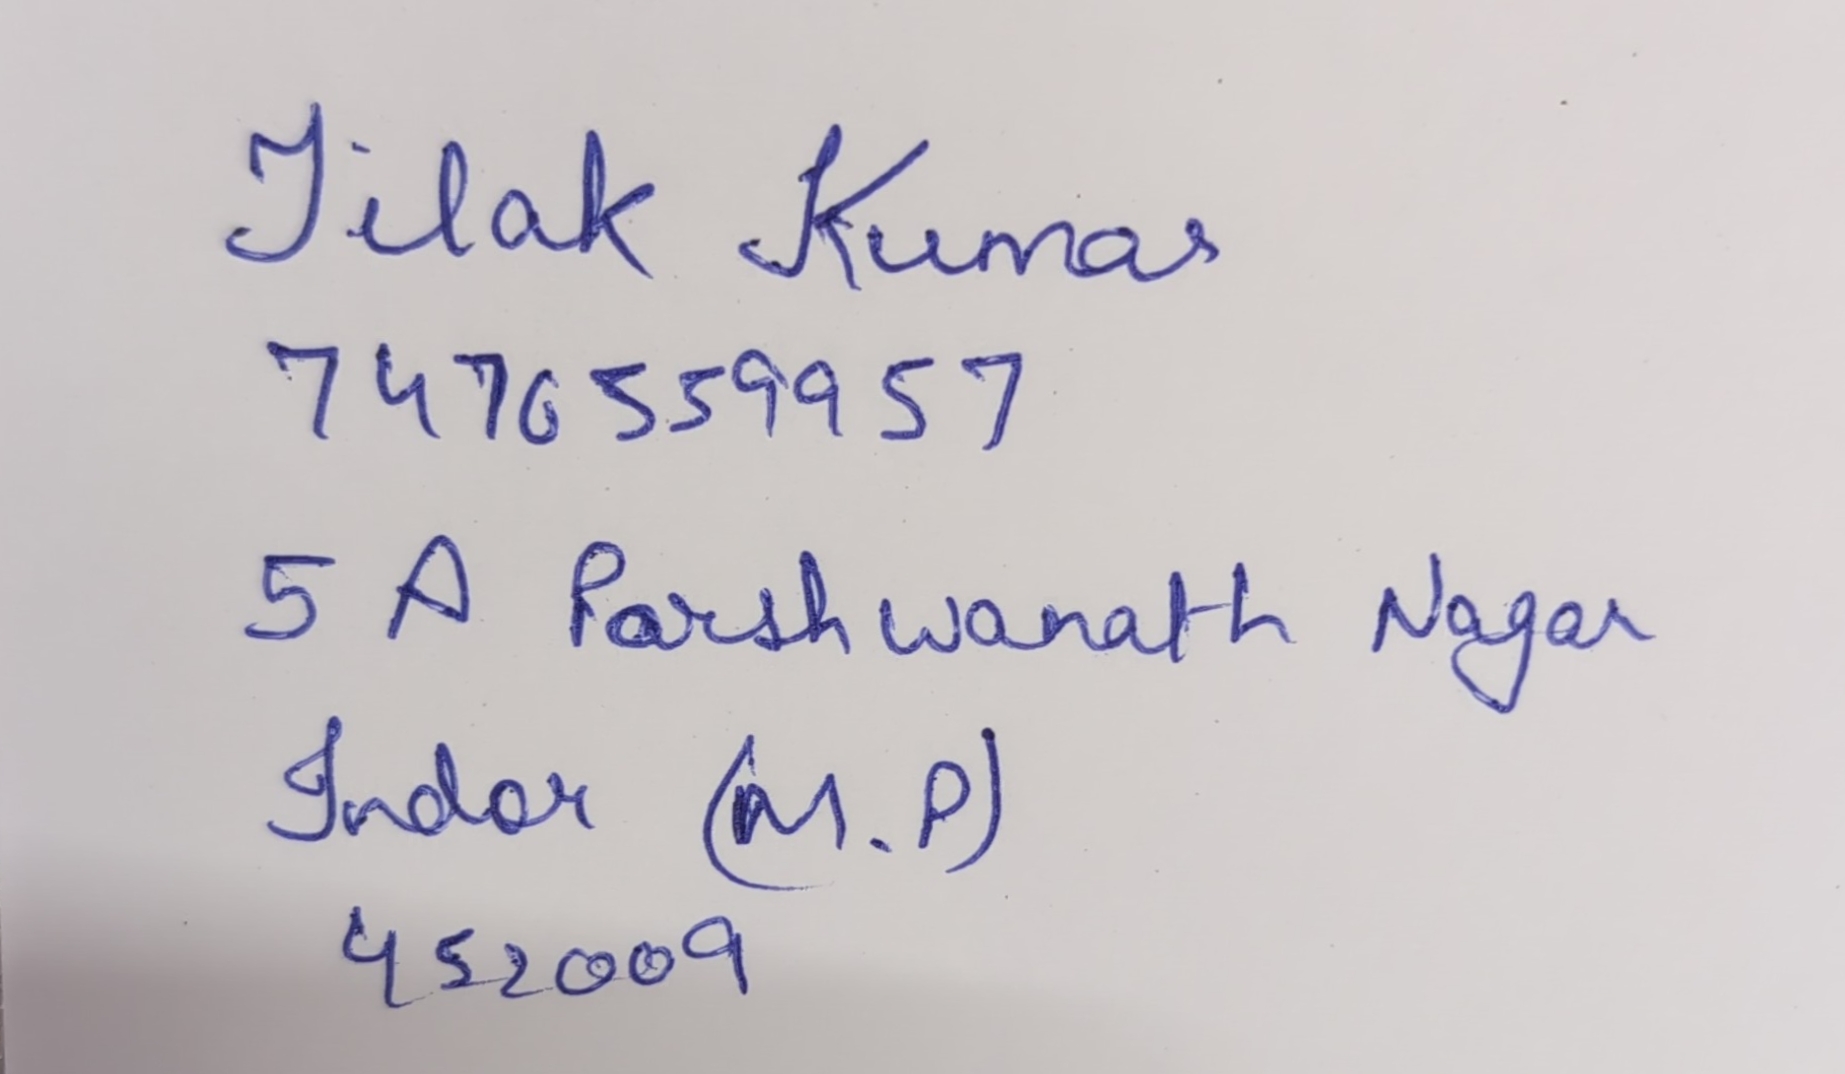 Tilak Kumar
7476559957
5 A Parshwanath Nagar
Indor (M.P)
452009